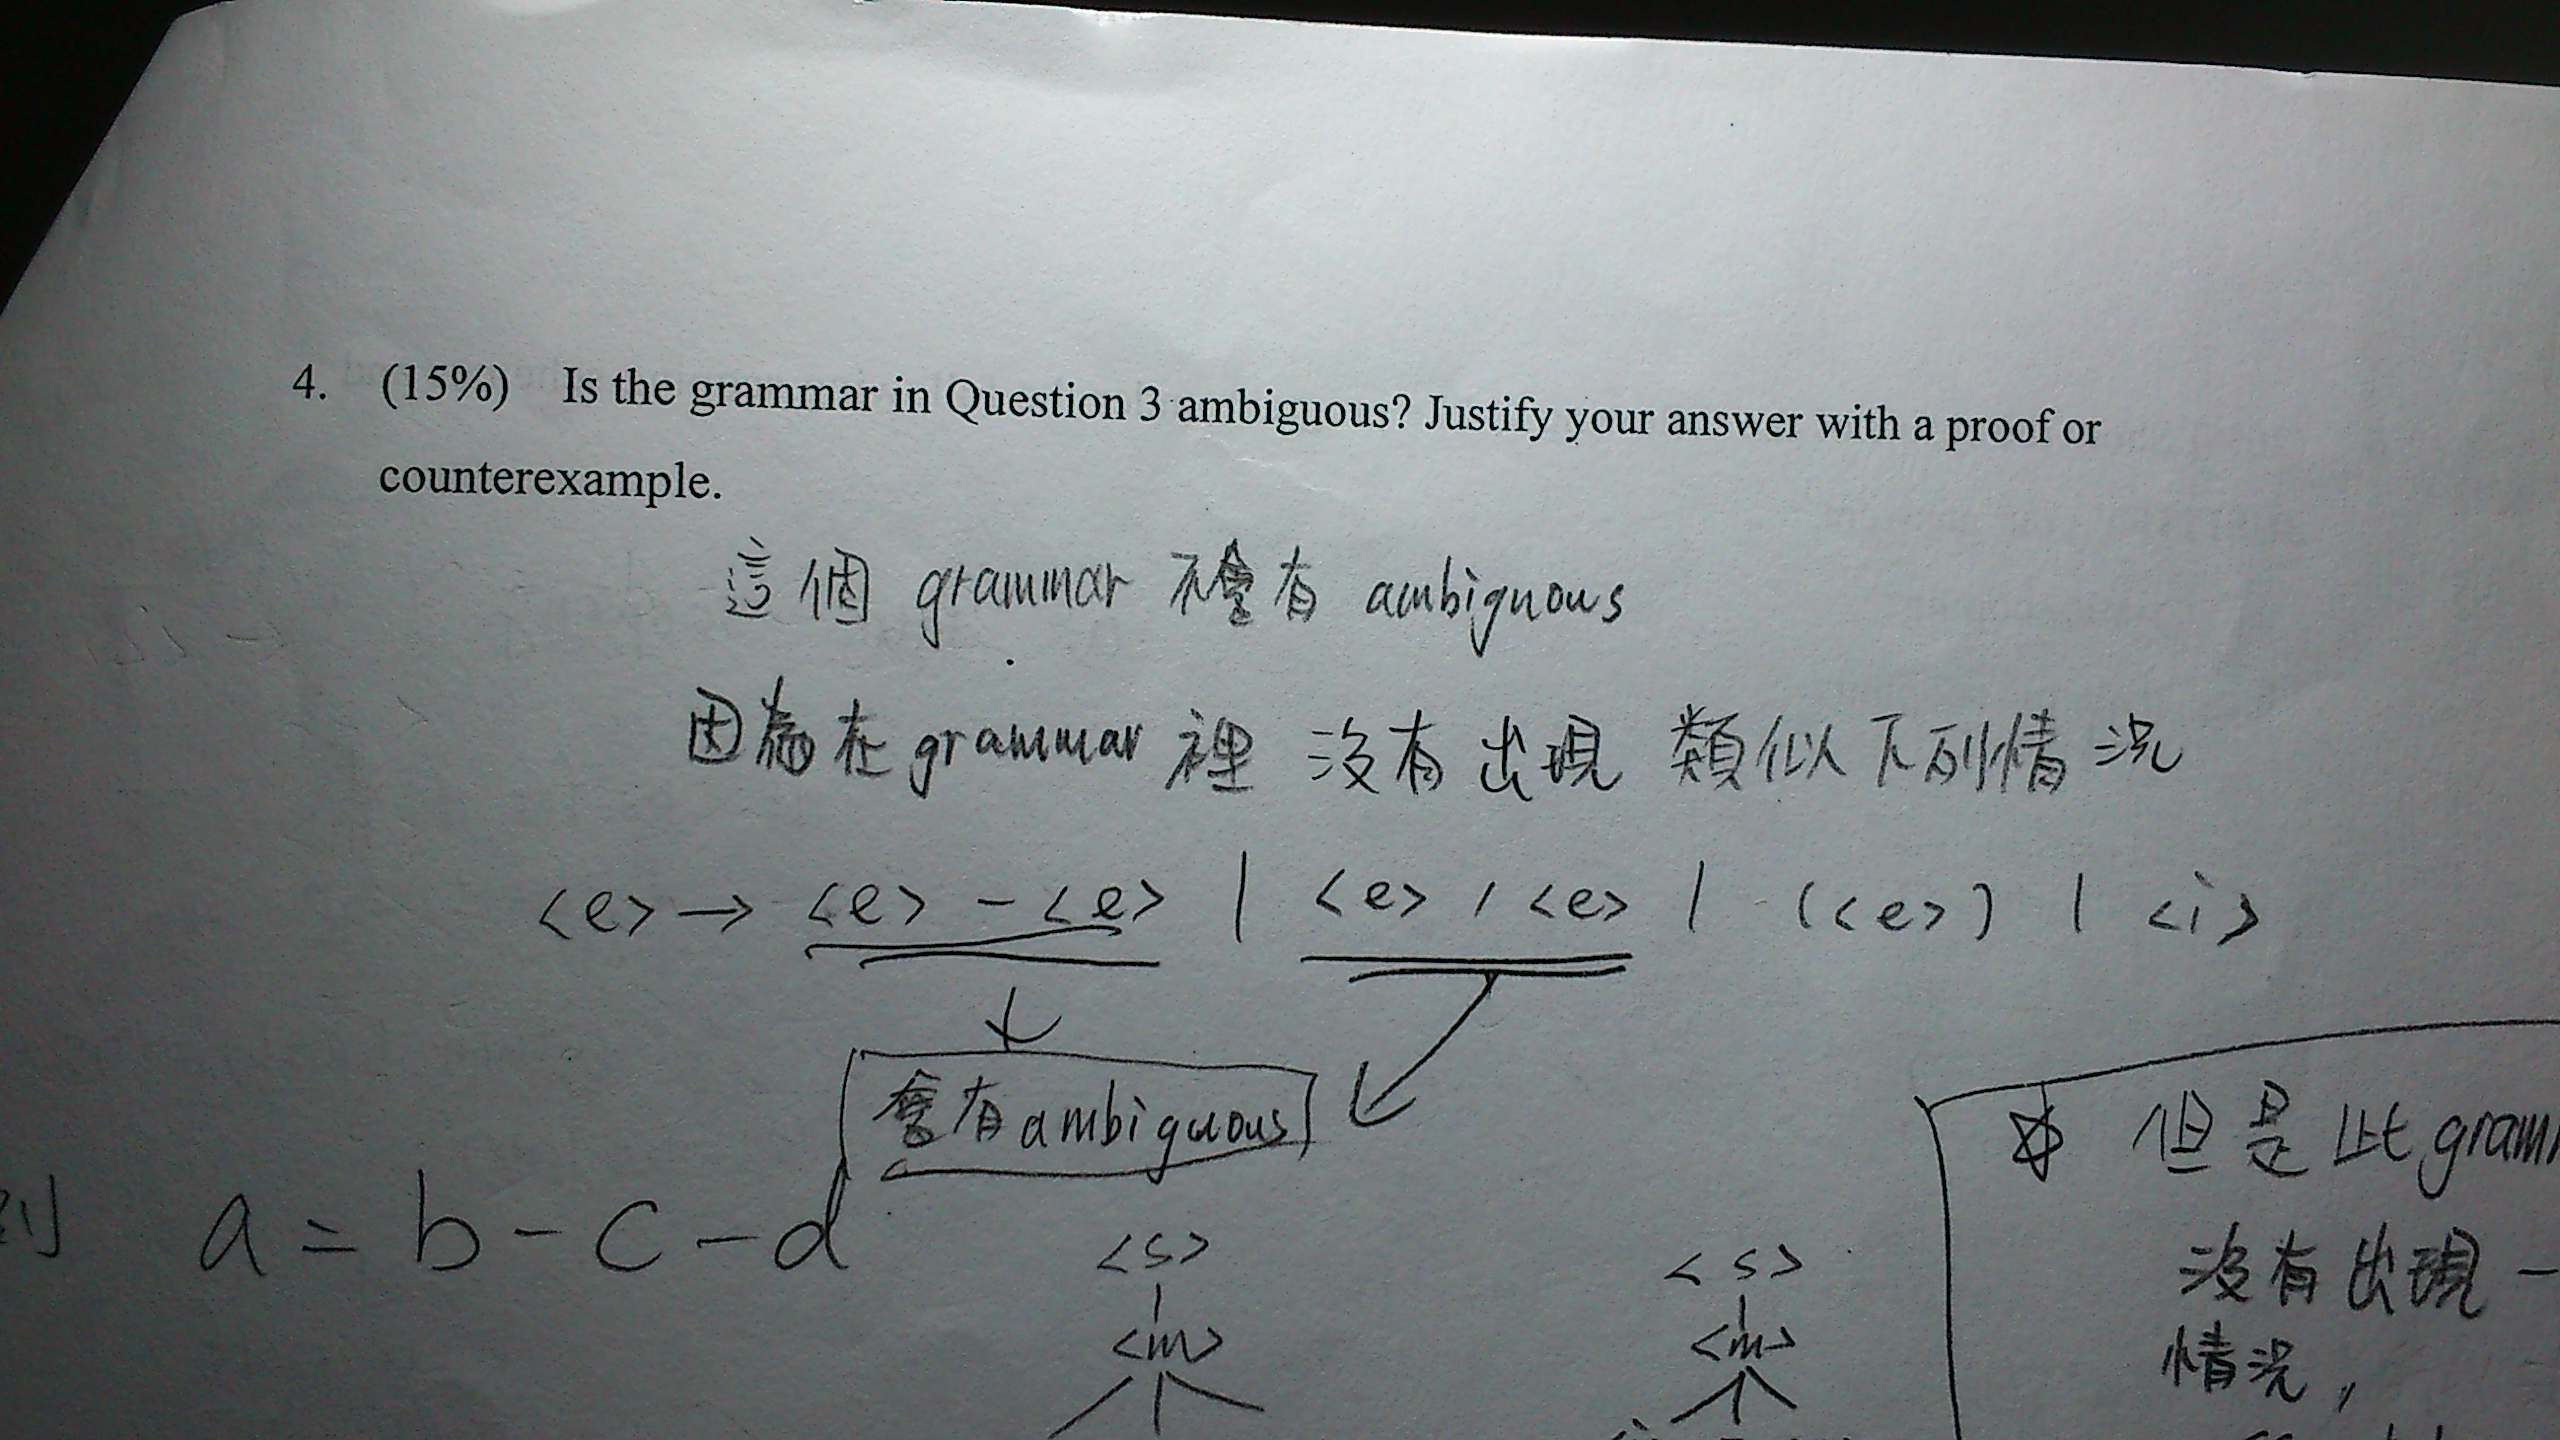 4. (15%) Is the grammar in Question 3 ambiguous? Justify your answer with a proof or
counterexample.
這個 grammar 不會有 ambiguous
因為在 grammar 裡 沒有出現 類似下列情況
<e> → <e> - <e> | <e> / <e> | (<e>) | <i>
會有 ambiguous
a = b - c - d
<s>
<m>
<s>
<m>
但是此 gram
沒有出現一
情況,